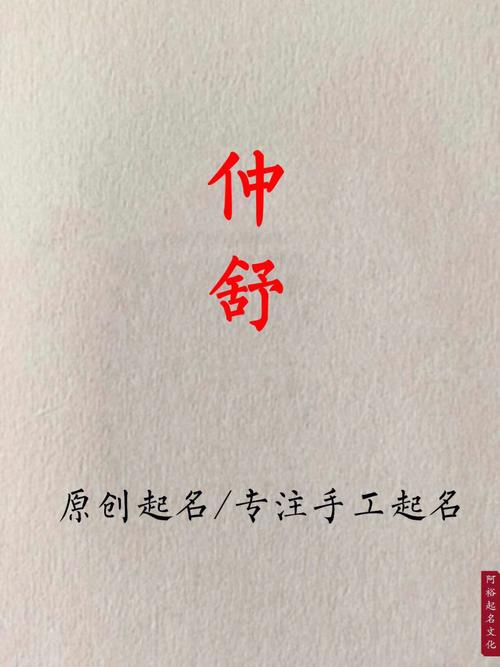 仲
舒
原创起名/专注手工起名
阿裕起名文化